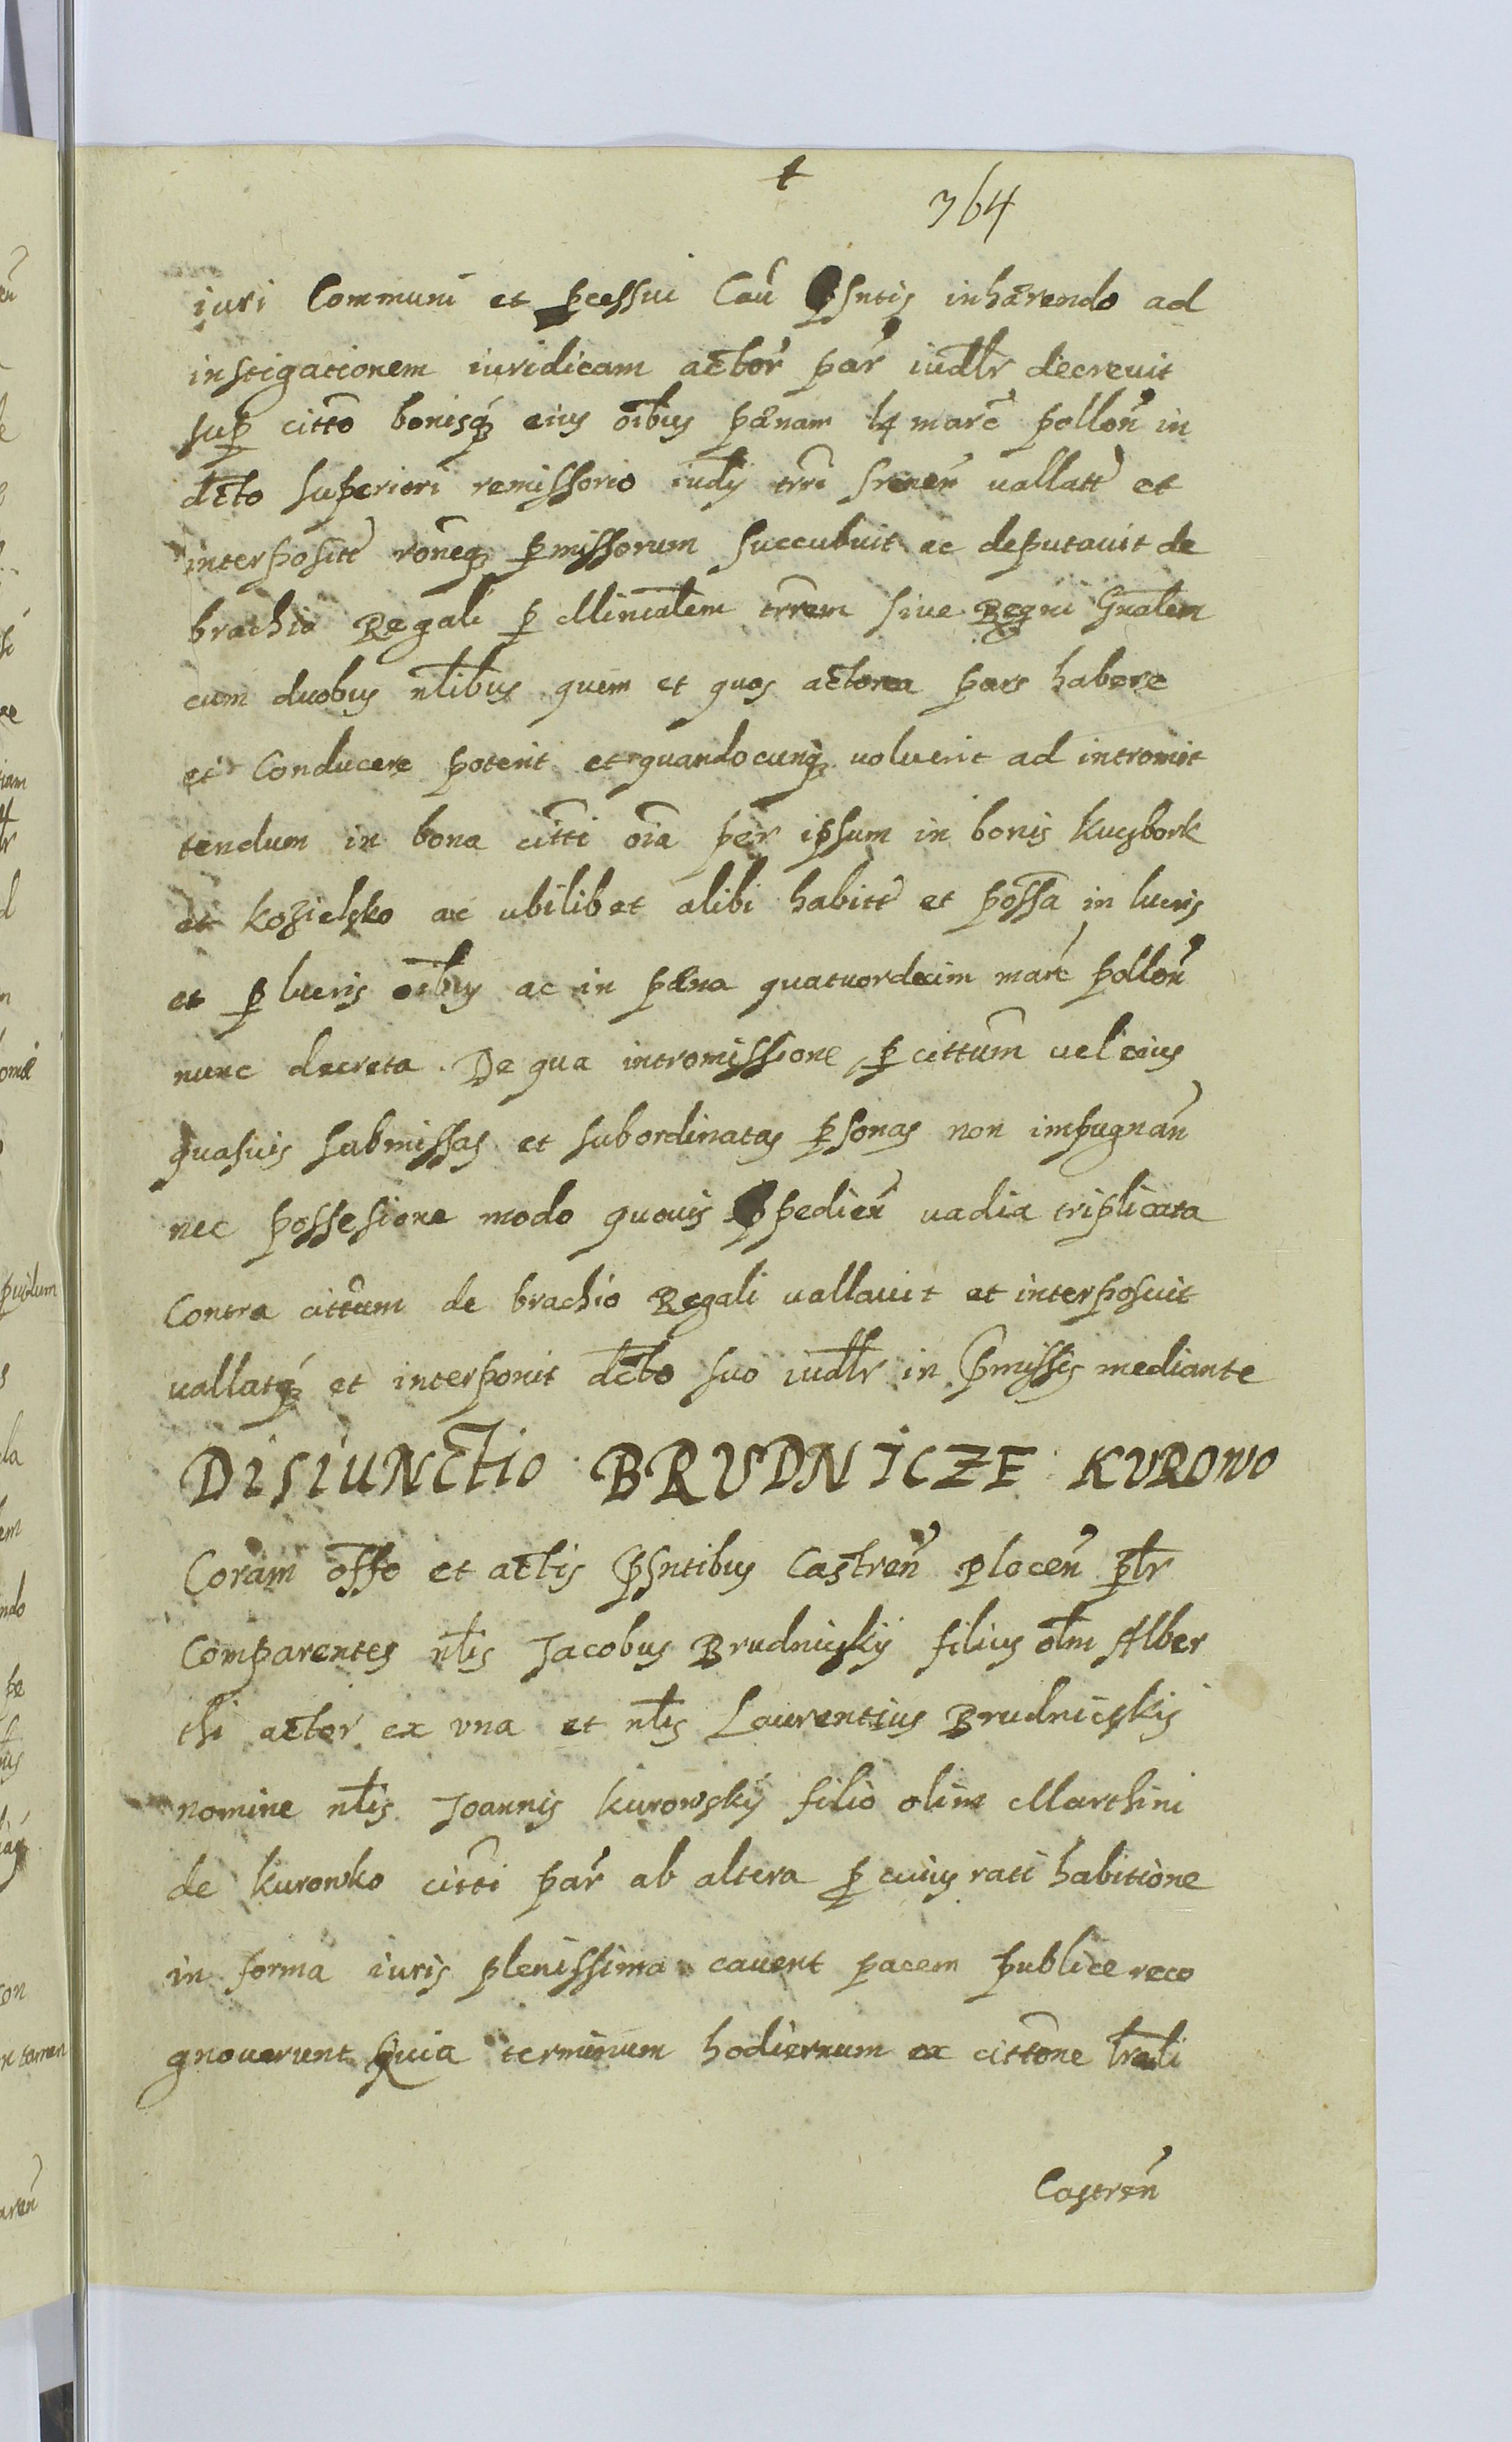 t
364
iuri Communi et pcessui Cau psntis inhærendo ad
instigationem iuridicam actor par iudlr decrevit
sup citto bonisq eius oibus pænam 14 marc pollon in
dcto superiori remissorio iudy trri Srenen vallatt et
interpositt roneq pmissorum succubuit ac deputavit de
brachio Regali p Minialem trrem sive Regni Gnalem
cum duobus nlibus quem et quos actorea pars habere
et Conducere poterit et quandocunq voluerit ad intromit
tendum in bona citti oia per ipsum in bonis Kuczbork
et Kozielsko ac ubilibet alibi habitt et possa in lucris
et p lucris oibus ac in pæna quatuordecim marc pollon
nunc decreta. De qua intromissione p cittum vel eius
quasvis submissas et subordinatas psonas non impugnan
nec possesione modo quovis ppedien vadia triplicata
Contra cittum de brachio Regali vallavit et interposuit
vallatq et interponit dcto suo iudlr in pmissis mediante
DISIUNCTIO BRUDNICZE KUROWO
Coram offo et actis psntibus Castren Plocen plr
Comparentes nlis Jacobus Brudniczkÿ filius olm Alber
thi actor ex una et nlis Laurentius Brudniczkis
nomine nlis Joannis Kurowskÿ filio olim Marthini
de Kurowko citti par ab altera p cuius rati habitione
in forma iuris plenissima cavent pacem publice reco
gnoverunt Quia terminum hodiernum ex cittone lrali
Castren